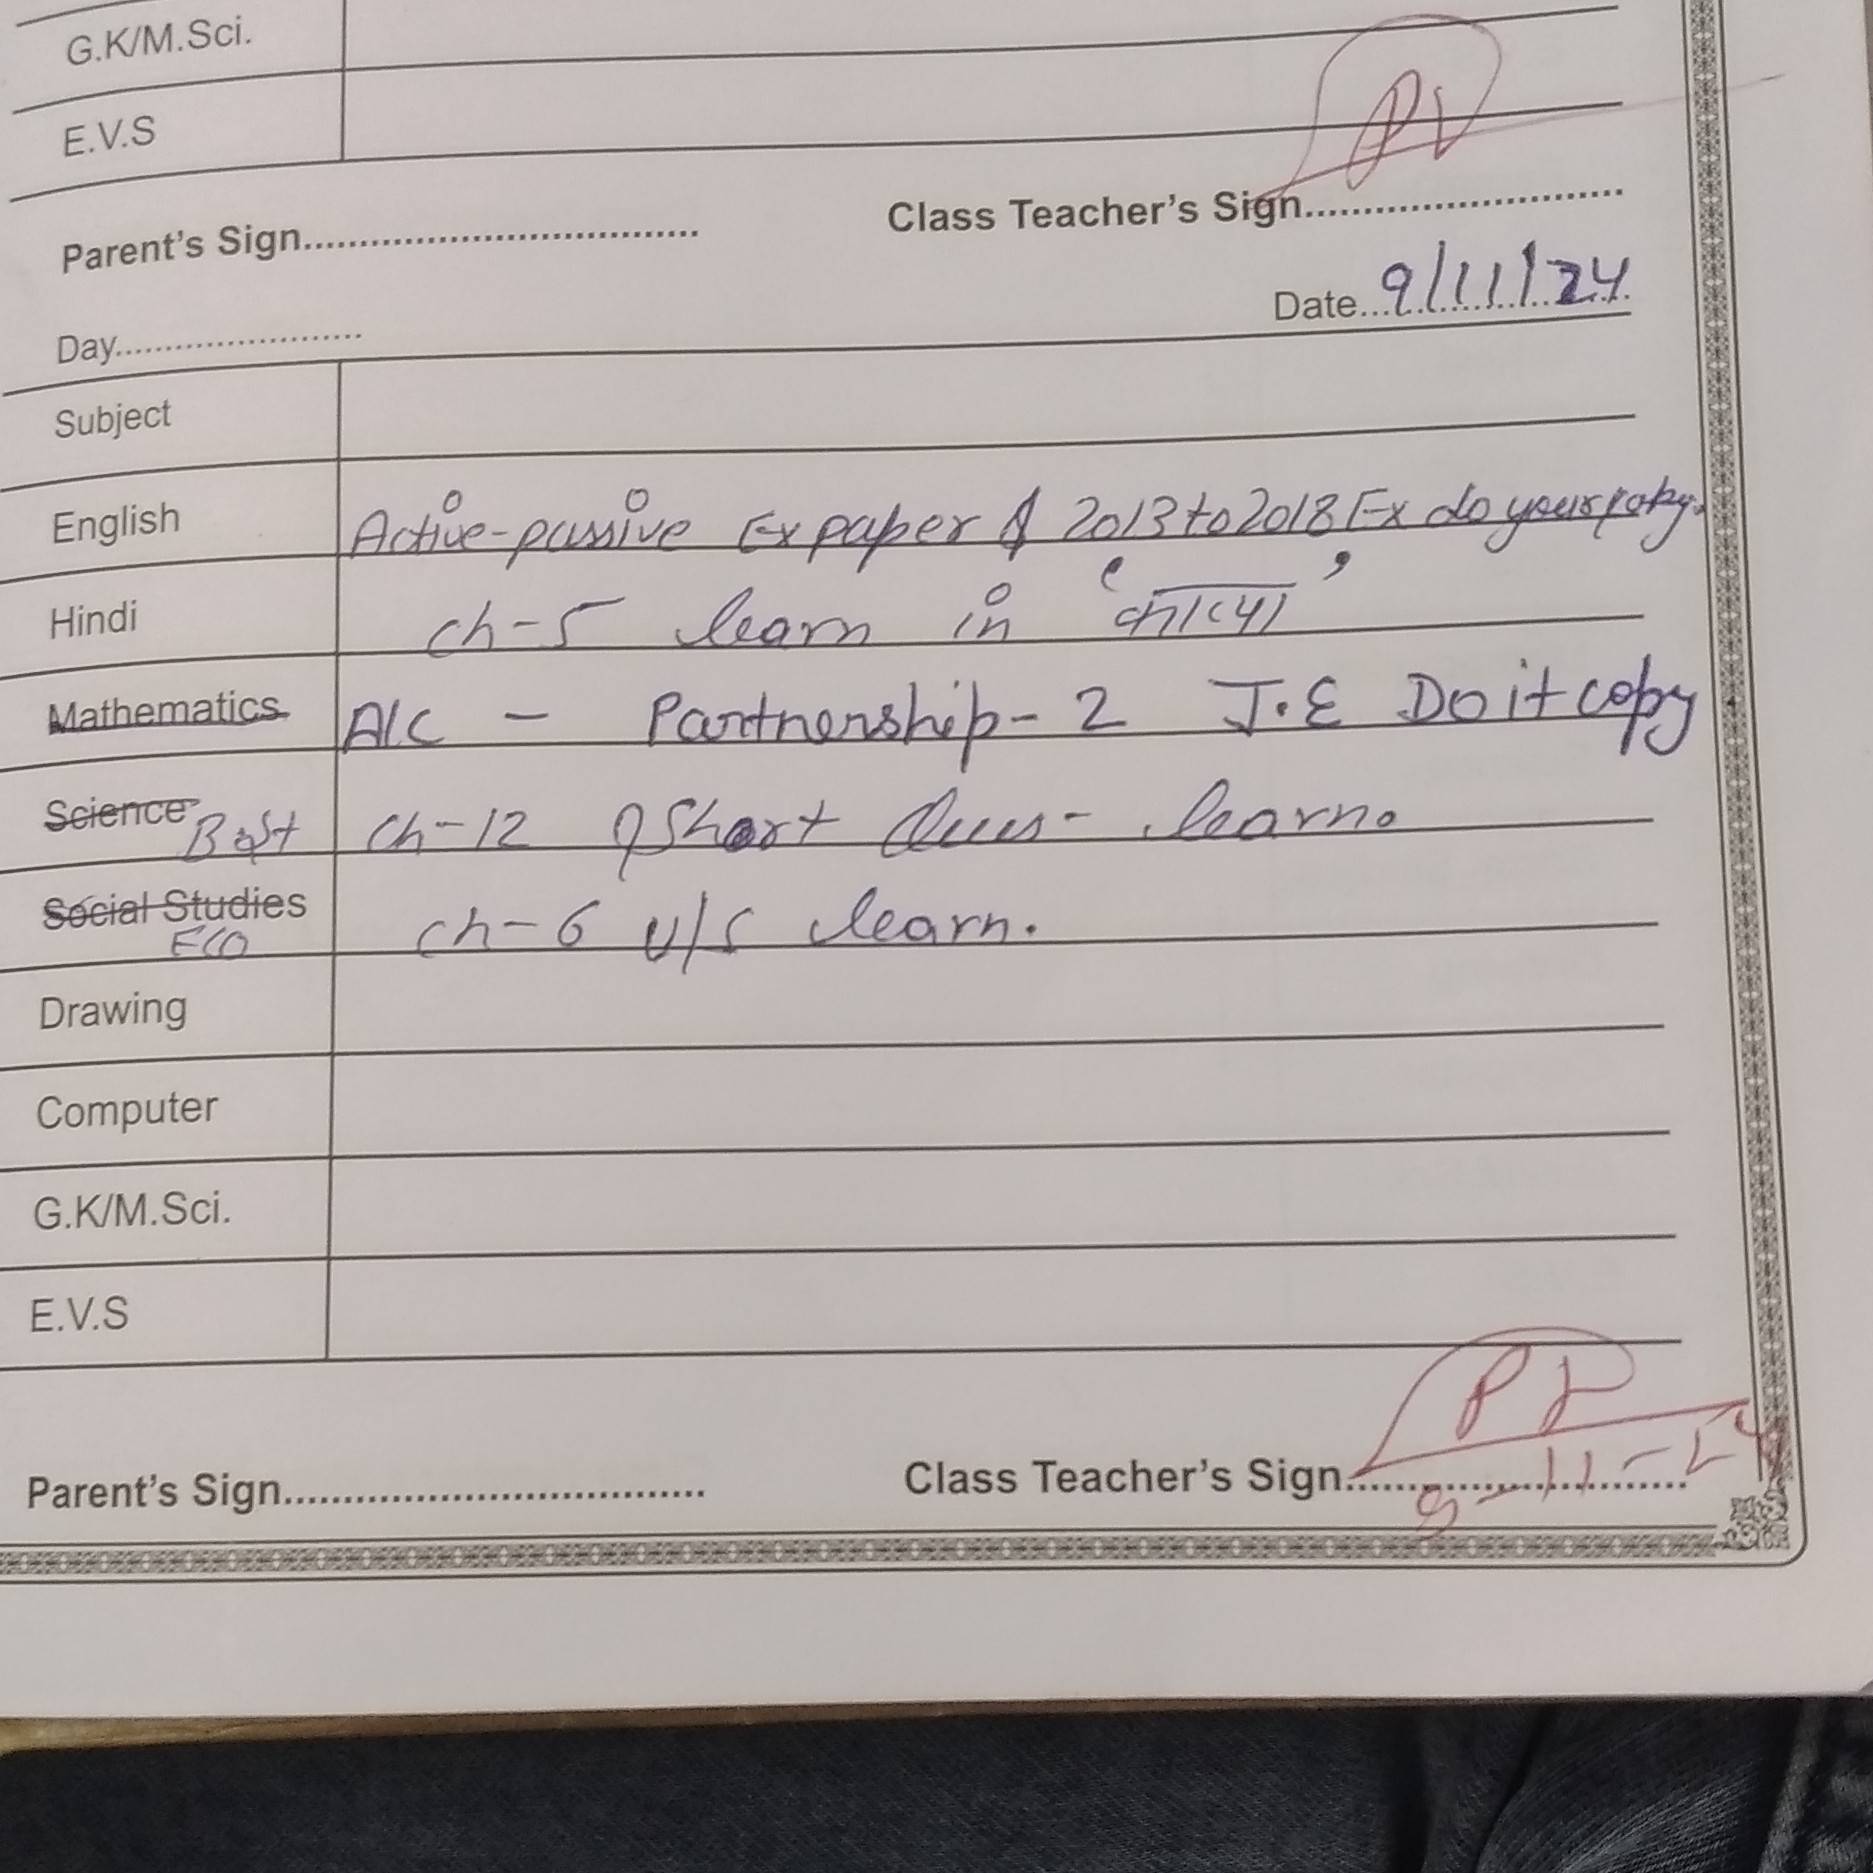 G.K/M.Sci.
E.V.S
Parent's Sign.................................... Class Teacher's Sign............................
Day........................ Date...9/11/24
Subject
English Active-passive Ex paper 2013 to 2018 Ex do your copy.
Hindi ch-5 learn in ' '
Mathematics A/C - Partnership-2 J.E Do it copy
Science Bst ch-12 Short Ques- learn.
Social Studies ECO ch-6 V/S learn.
Drawing
Computer
G.K/M.Sci.
E.V.S
Parent's Sign.................................... Class Teacher's Sign............................
9-11-24